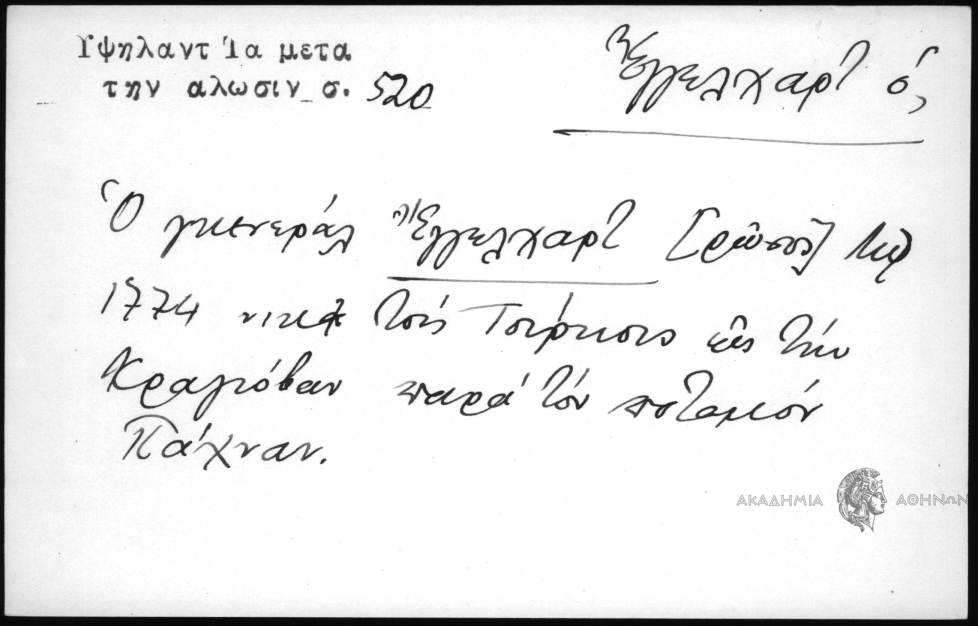 Ὑψηλαντ Τα μετα
την αλωσιν σ. 520
Ἔγγελχαρτ ὁ,
Ὁ γκενεράλ Ἔγγελχαρτ [ρῶσος] τῷ
1774 νικᾷ τοὺς Τούρκους εἰς τὴν
Κραγιόβαν παρὰ τὸν ποταμὸν
Πάχναν.
ΑΚΑΔΗΜΙΑ ΑΘΗΝΩΝ